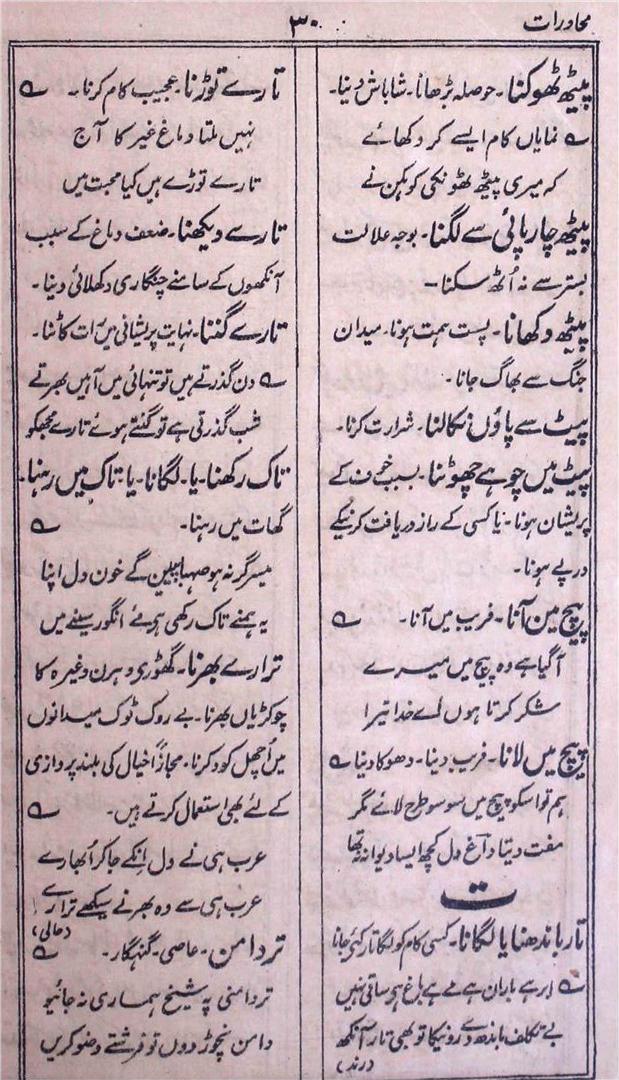 محاورات
۳۰
پیٹھ ٹھوکنا۔ حوصلہ بڑھانا۔ شاباش دینا۔
؎ نمایاں کام ایسے کر دکھائے
کہ میری پیٹھ ٹھونکی کوہکن نے
پیٹھ چارپائی سے لگنا۔ بوجہ علالت
بستر سے نہ اُٹھ سکنا۔
پیٹھ دکھانا۔ پست ہمت ہونا۔ میدان
جنگ سے بھاگ جانا۔
پیٹ سے پاؤں نکالنا۔ شرارت کرنا۔
پیٹ میں چوہے چھوٹنا۔ بسبب خوف کے
پریشان ہونا۔ یا کسی کے راز دریافت کرنیکے
درپے ہونا۔
پیچ میں آنا۔ فریب میں آنا۔ ؎
آگیا ہے وہ پیچ میں میرے
شکر کرتا ہوں اے خدا تیرا
پیچ میں لانا۔ فریب دینا۔ دھوکا دینا ؎
ہم تو اسکو پیچ میں سو سو طرح لائے مگر
مفت دیتا داغ دل کچھ ایسا دیوانہ نہ تھا
ت
تار باندھنا یا لگانا۔ کسی کام کو لگاتار کئے جانا
؎ ابر ہے باراں ہے مے ہے باغ ہے ساقی نہیں
بے تکلف باندھ دے رونیکا تو بھی تار آنکھ
(رند)
تارے توڑنا۔ عجیب کام کرنا۔ ؎
نہیں ملتا دماغ غیر کا آج
تارے توڑے ہیں کیا محبت میں
تارے دیکھنا۔ ضعف دماغ کے سبب
آنکھوں کے سامنے چنگاری دکھلائی دینا۔
تارے گننا۔ نہایت پریشانی میں رات کاٹنا۔
؎ دن گذرتے ہیں تو تنہائی میں آہیں بھرتے
شب گذرتی ہے تو گنتے ہوئے تارے مجھکو
تاک رکھنا۔ یا۔ لگانا۔ یا۔ تاک میں رہنا۔
گھات میں رہنا۔ ؎
میسر گر نہ ہو صہبا پیینگے خون دل اپنا
یہ ہمنے تاک رکھی ہوئے انگور سینے میں
ترارے بھرنا۔ گھوڑی و ہرن وغیرہ کا
چوکڑیاں بھرنا۔ بے روک ٹوک میدانوں
میں اُچھل کود کرنا۔ مجازاً خیال کی بلند پروازی
کے لئے بھی استعمال کرتے ہیں۔ ؎
عرب ہی نے دل انکے جا کر اُبھارے
عرب ہی سے وہ بھرنے سیکھے ترارے
(حالی)
تردامن۔ عاصی۔ گنہگار۔ ؎
تردامنی پہ شیخ ہماری نہ جائیو
دامن نچوڑ دوں تو فرشتے وضو کریں